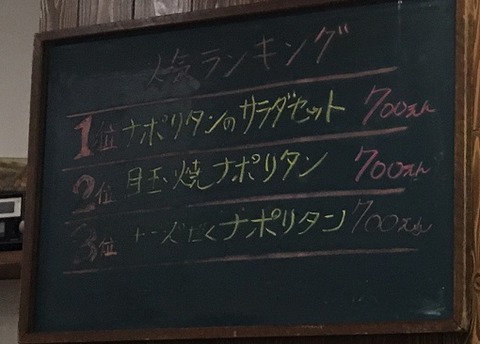 人気ランキング
1位 ナポリタンのサラダセット 700えん
2位 目玉焼ナポリタン 700えん
3位 チーズだくナポリタン 700えん